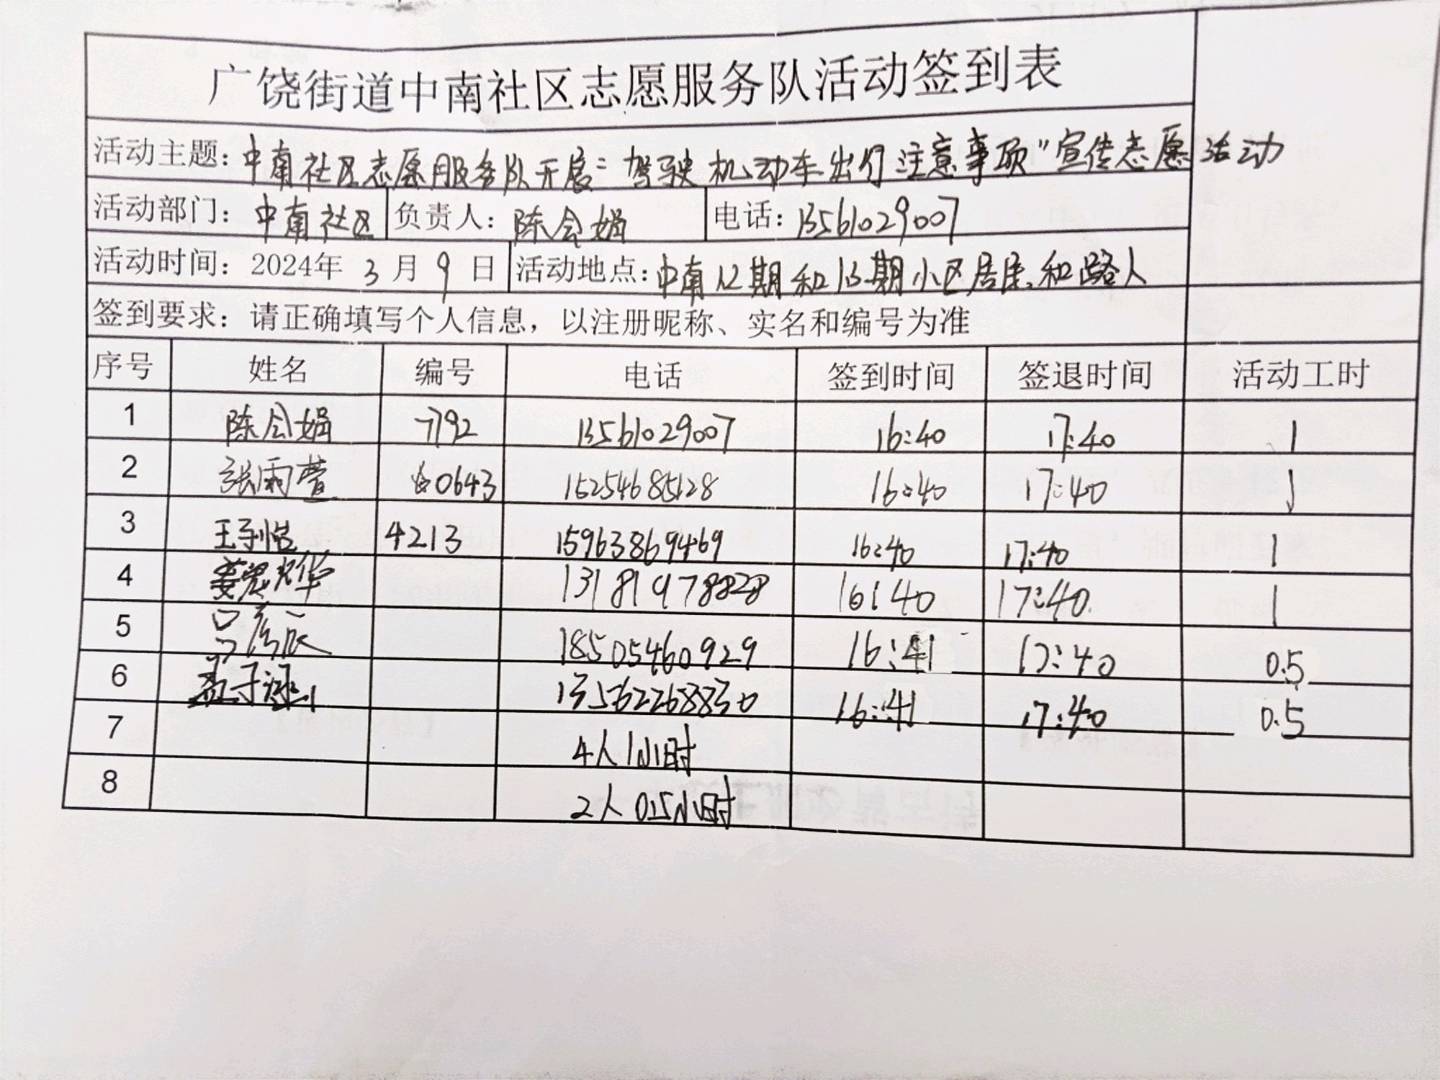 广饶街道中南社区志愿服务队活动签到表
活动主题：中南社区志愿服务队开展“驾驶机动车出行注意事项”宣传志愿活动
活动部门：中南社区 负责人：陈会娟 电话：13561029007
活动时间：2024年 3 月 9 日 活动地点：中南12期和13期小区居民和路人
签到要求：请正确填写个人信息，以注册昵称、实名和编号为准
序号 姓名 编号 电话 签到时间 签退时间 活动工时
1 陈会娟 7792 13561029007 16:40 17:40 1
2 张雨萱 0643 15254685128 16:40 17:40 1
3 王子恺 4213 15963869469 16:40 17:40 1
4 13181978828 16:40 17:40 1
5 18505460929 16:41 17:40 0.5
6 13562268830 16:41 17:40 0.5
7 4人1小时
8 2人0.5小时